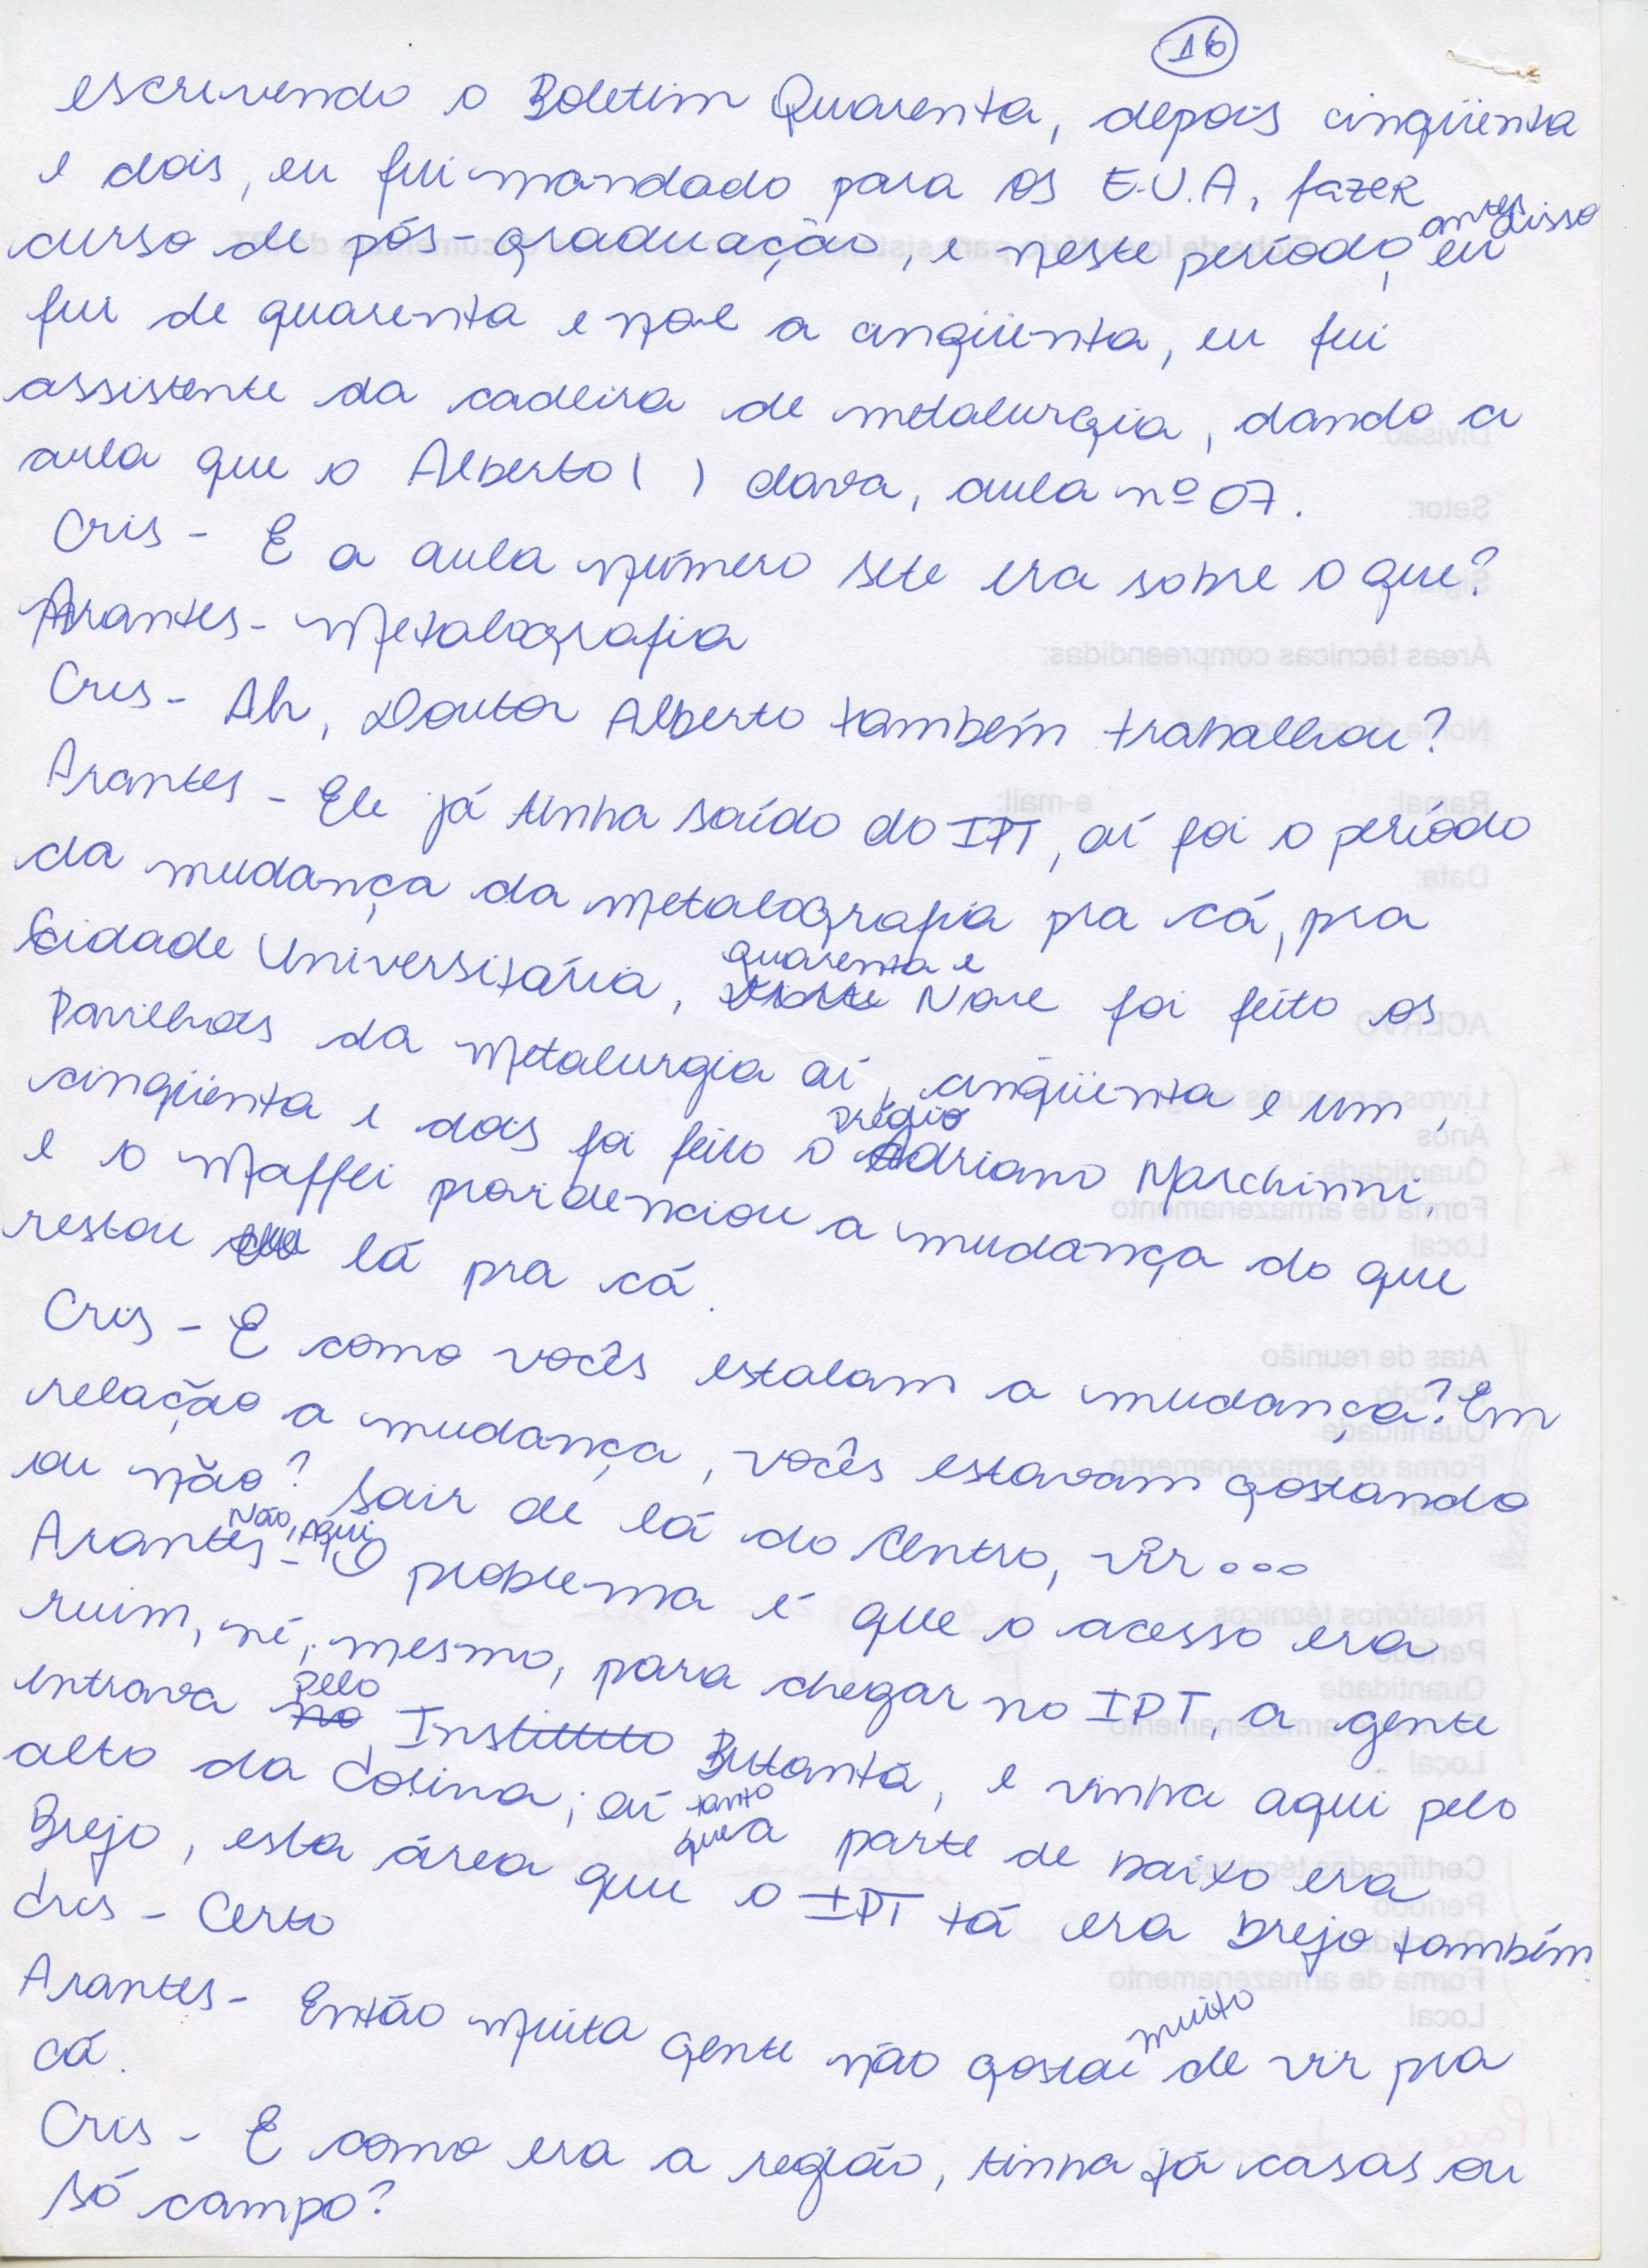 16
escrevendo o Boletim Quarenta, depois cinqüenta
e dois, eu fui mandado para os E.U.A, fazer
curso de pós-graduação, e neste período, antes disso eu
fui de quarenta e nove a cinqüenta, eu fui
assistente da cadeira de metalurgia, dando a
aula que o Alberto ( ) dava, aula nº 07.
Cris - E a aula número sete era sobre o que?
Arantes - Metalografia
Cris - Ah, Doutor Alberto também trabalhou?
Arantes - Ele já tinha saído do IPT, aí foi o período
da mudança da metalografia pra cá, pra
Cidade Universitária, quarenta e Nove foi feito os
Pavilhões da Metalurgia aí, cinqüenta e um,
cinqüenta e dois foi feito o Prédio Adriano Marchinni,
e o Maffei providenciou a mudança do que
restou lá pra cá.
Cris - E como vocês estalam a mudança? Em
relação a mudança, vocês estavam gostando
ou não? Sair de lá do Centro, vir...
Arantes - Não, Aqui O problema é que o acesso era
ruim, né, mesmo, para chegar no IPT, a gente
entrava pelo Instituto Butantã, e vinha aqui pelo
alto da Colina, aí tanto que a parte de baixo era
Brejo, esta área que o IPT tá era brejo também.
Cris - Certo
Arantes - Então muita gente não gostou muito de vir pra
cá.
Cris - E como era a região, tinha já casas ou
só campo?
Divisão:
Setor:
Áreas técnicas compreendidas:
Ramal: e-mail:
Data:
ACERVO
Anos
Quantidade
Forma de armazenamento
Local
Atas de reunião
Quantidade
Forma de armazenamento
Relatórios técnicos
Quantidade
Local
Certificados técnicos
Período
Forma de armazenamento
Local